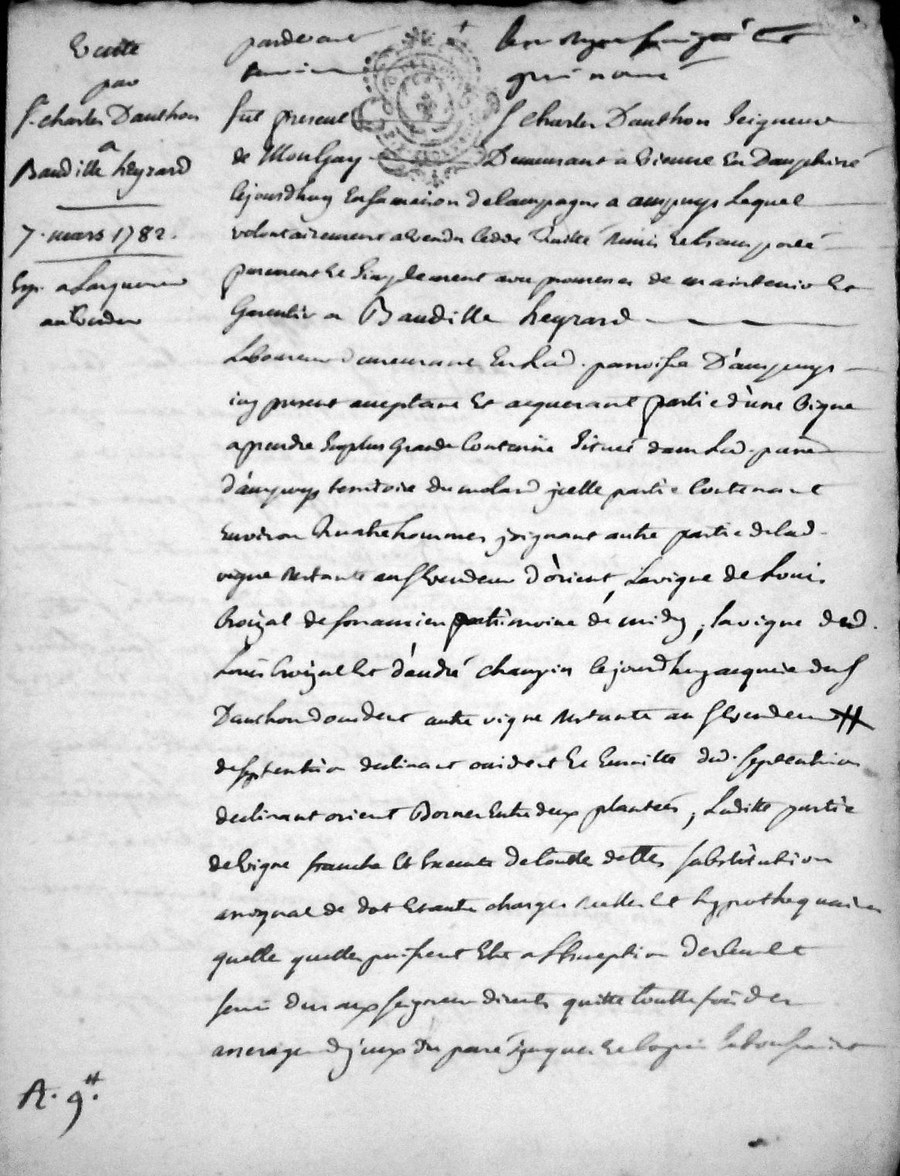 Vente
par
Sr. charles Dauthon
a
Baudille heyrard
7. mars 1782.
Exp. a Lacquereur
au vendeur
pardevant
fut present Sr charles Dauthon Seigneur
de Mongay Demeurant a vienne En Dauphiné
cejourdhuy En sa maison de campagne a ampuys Lequel
volontairement a vendu cedde quitté remis Et transporté
purement Et simplement avec promesse de maintenir Et
Garentir a Baudille heyrard
Laboureur demeurant En Lad. parroisse D'ampuys
icy present acceptant Et acquerant partie d'une vigne
a prendre En plus Grande Contenüe Située dans Lad. parre
d'ampuys territoire du molard jcelle partie Contenant
Environ Quatre hommes joignant autre partie delad.
vigne restante au Sr vendeur d'orient, La vigne de Louis
de son ancien patrimoine de midy, la vigne dud.
Louis Et d'andré champin cejourdhuy acquise du Sr
Dauthon d'occident autre vigne restante au Sr vendeur #
de septentrion declinant occident Et Ensuitte dud. septentrion
declinant orient Bornes Entre deux plantées, Laditte partie
de vigne franche Et Exempte de toutte dettes substitution
de dot Et autre charges reelles Et hypothequaires
quelle quelles puissent Etre a L'Exception de Cens Et
servis dus aux seigneurs directs quitte touttefois des
arrerages d'jceux du passé jusques
A. 9.#